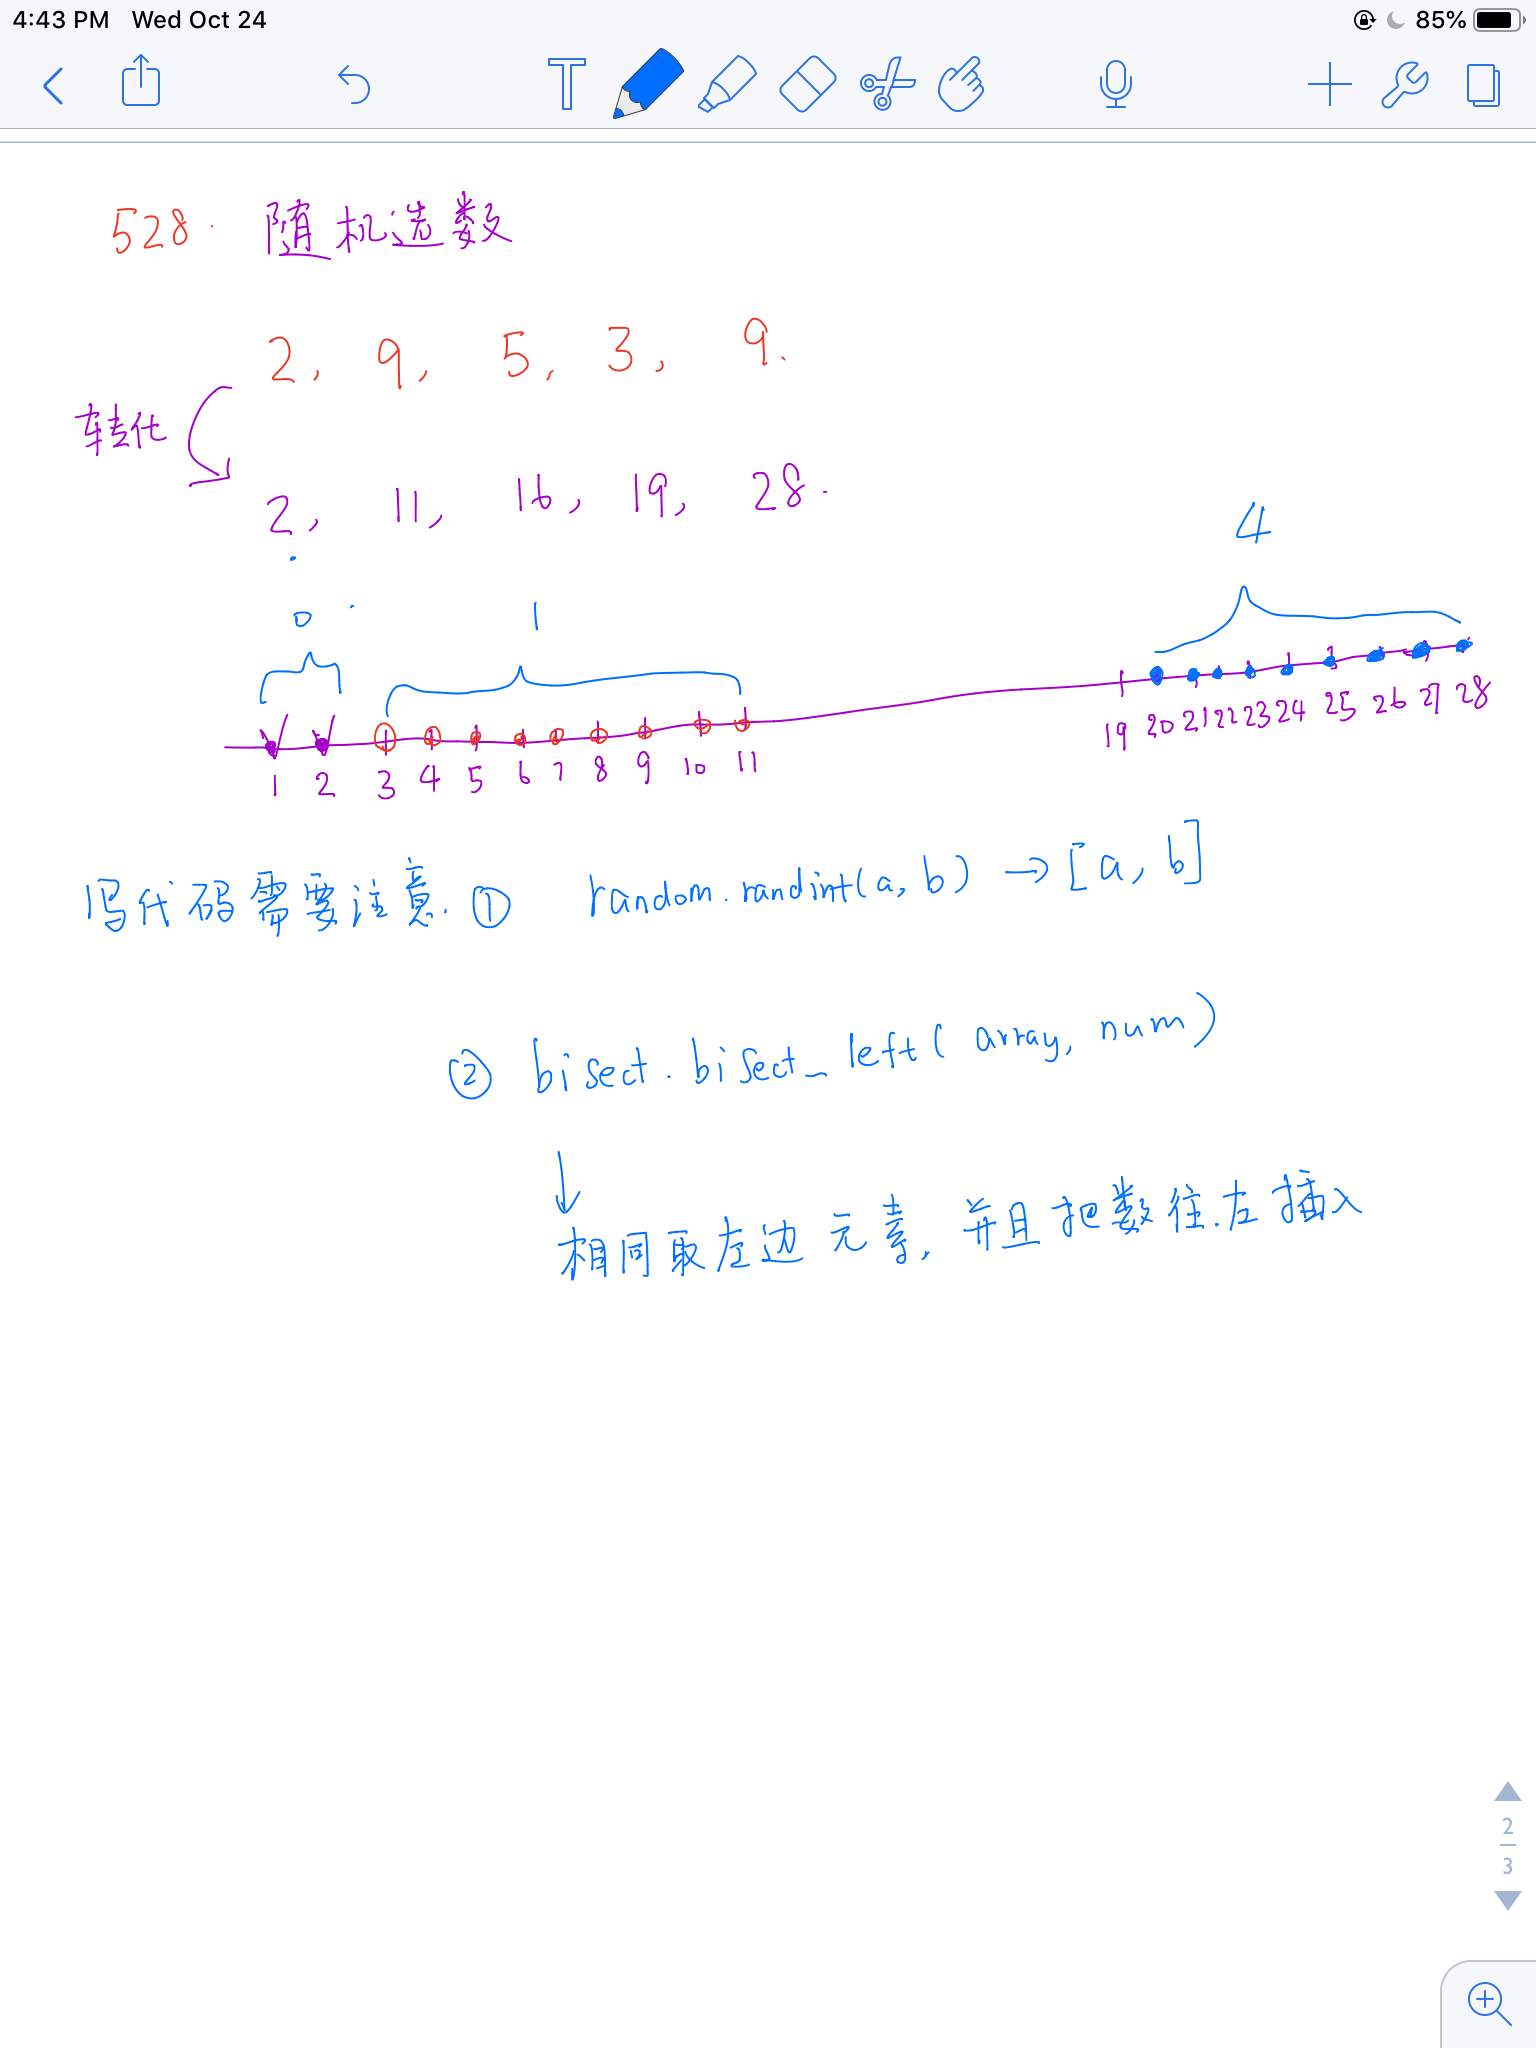 4:43 PM Wed Oct 24 85%
T
528. 随机选数
2, 9, 5, 3, 9.
转化
2, 11, 16, 19, 28.
0 1 4
1 2 3 4 5 6 7 8 9 10 11 19 20 21 22 23 24 25 26 27 28
写代码需要注意. ① random.randint(a, b) → [a, b]
② bisect.bisect_left( array, num)
↓
相同取左边元素, 并且把数往左插入
2
3